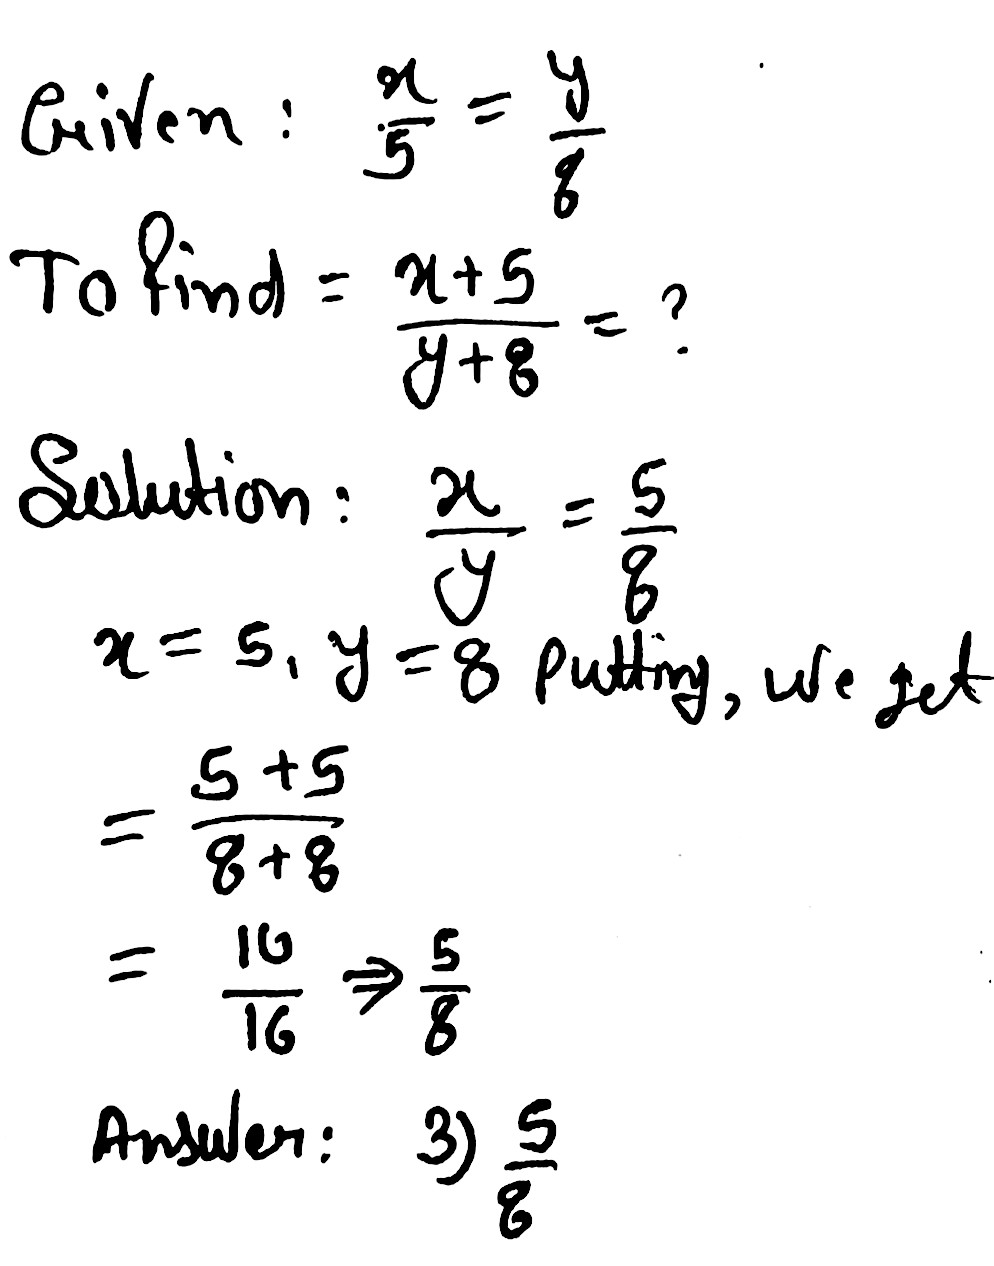 Given : x/5 = y/8
To find = x+5/y+8 = ?
Solution : x/y = 5/8
x = 5, y = 8 Putting, we get
= 5+5/8+8
= 10/16 ⇒ 5/8
Answer : 3) 5/8